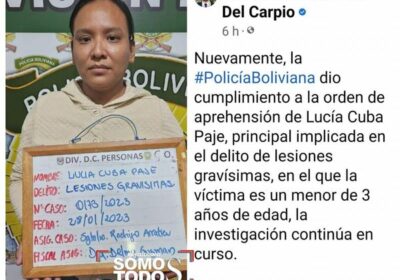 POLICÍA BOLIVIANA
DIV. D.C. PERSONAS
NOMBRE: LUCIA CUBA PAJE
DELITO: LESIONES GRAVISIMAS
Nº CASO: 0173/2023
FECHA: 28/01/2023
ASIG. CASO: Sgto. Rodrigo
FISCAL ASIG: DRA. Guzman
SOMOS
TODOS
Del Carpio
6 h ·
Nuevamente, la
#PolicíaBoliviana dio
cumplimiento a la orden de
aprehensión de Lucía Cuba
Paje, principal implicada en
el delito de lesiones
gravísimas, en el que la
víctima es un menor de 3
años de edad, la
investigación continúa en
curso.